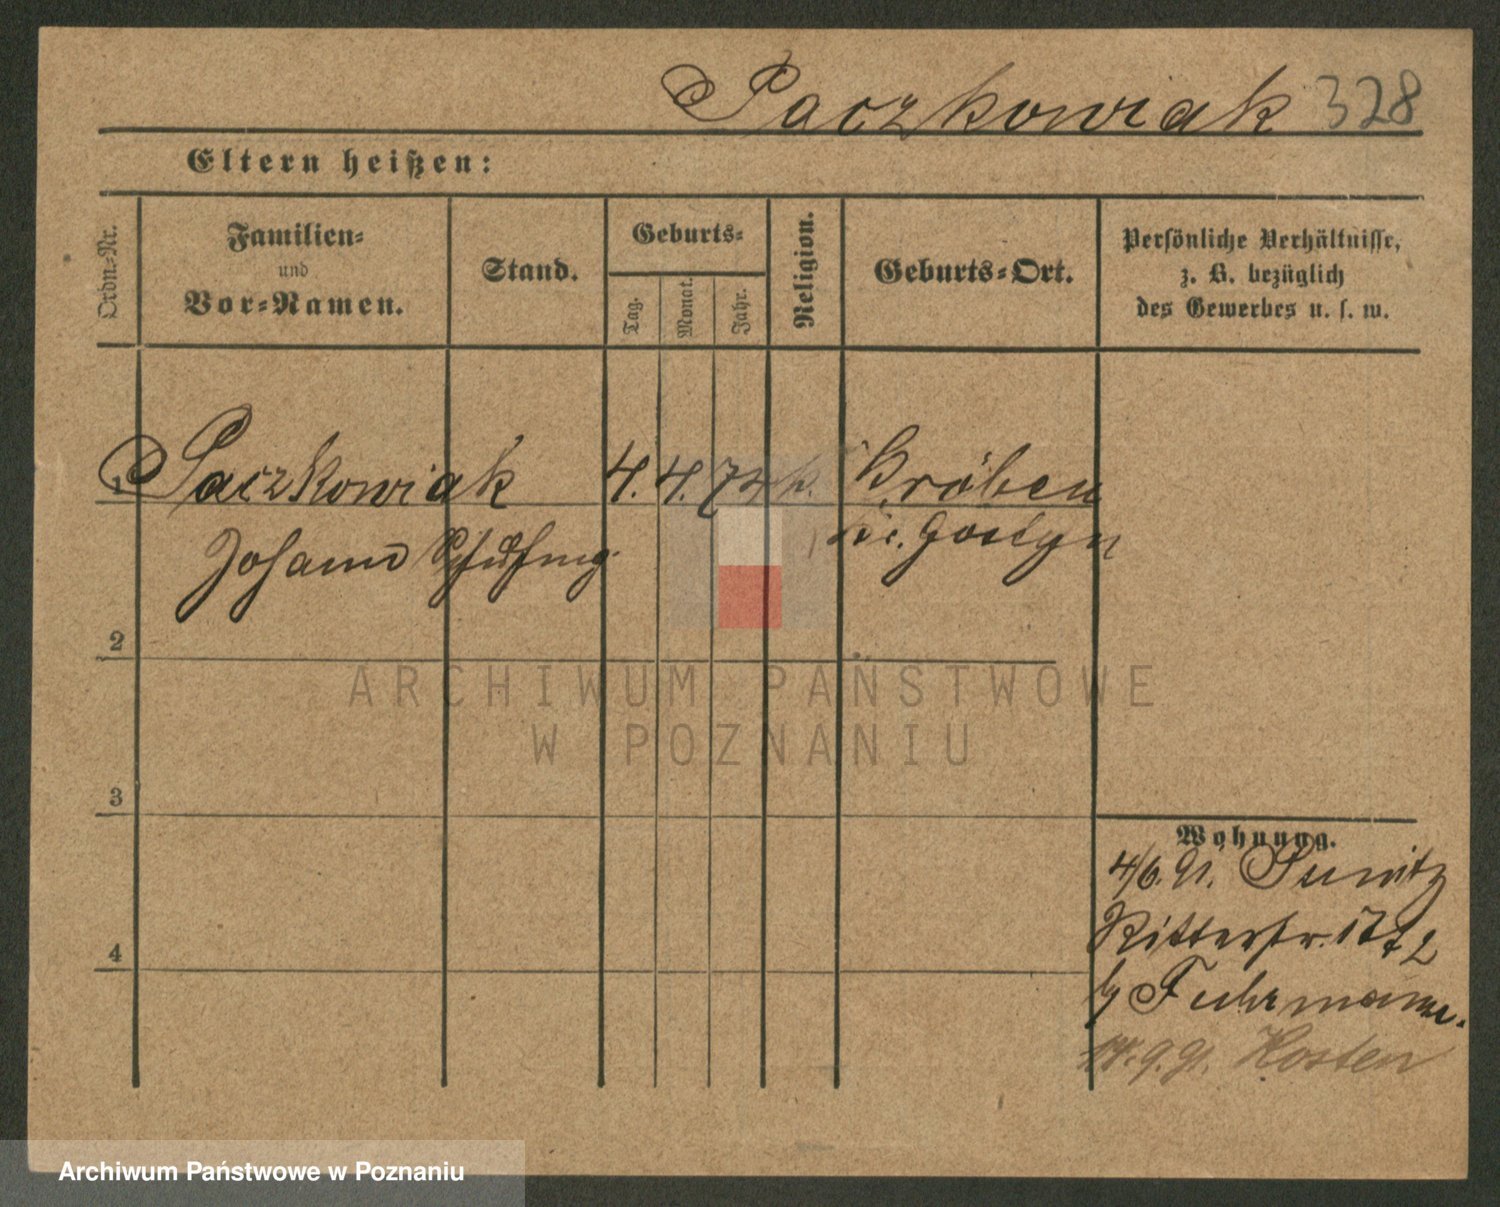 Paczkowiak 328
Eltern heißen:
Ordn.-Nr.
Familien-
und
Vor-Namen.
Stand.
Geburts-
Tag.
Monat.
Jahr.
Religion.
Geburts-Ort.
Persönliche Verhältnisse,
z. B. bezüglich
des Gewerbes u. s. w.
1 Paczkowiak 4. 4. 74 k. Kröben
Johann Kr. Gostyn
2
3
4
Wohnung.
4/6. 91. Punitz
Ritterstr. 17
b/ Fuhrmann.
14. 9. 91. Kosten
ARCHIWUM PAŃSTWOWE
W POZNANIU
Archiwum Państwowe w Poznaniu